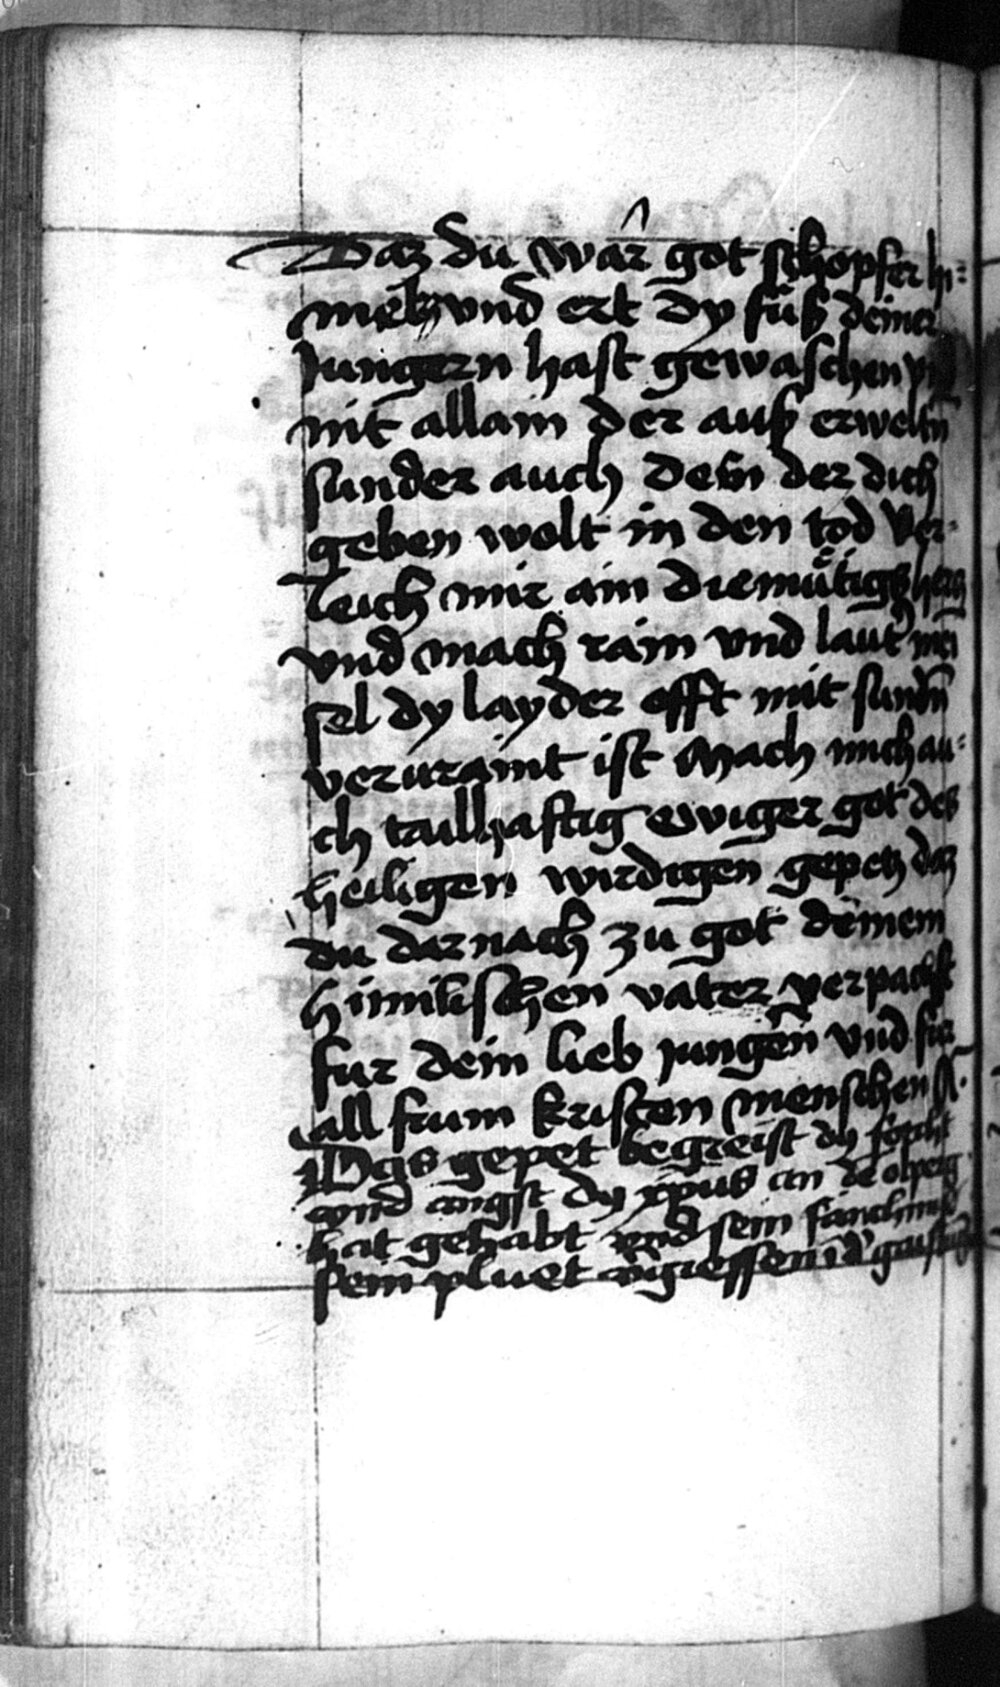 Daz du war got schopfer hi=
melz vnd ert dy füß deiner
Jungern hast gewaschen vnd
nit allain der auß erweltn̄
sunder auch dem der dich
geben wolt in den tod Ver=
leich mir ain diemütigs hercz
vnd mach rain vnd laut mei
sel dy layder offt mit sundn̄
veruraint ist Mach mich au=
ch tailhaftig ewiger got des
heiligen wirdigen gepetz daz
du darnach zu got deinem
himilischen vater verpachst
fur dein lieb jungern̄ vnd fur
all frum kristen menschen A.
Das gepet begreist dy forcht
vnd angst dy xpus an dē olperg
hat gehabt vnd sein
sein pluet vgiessen ī d'